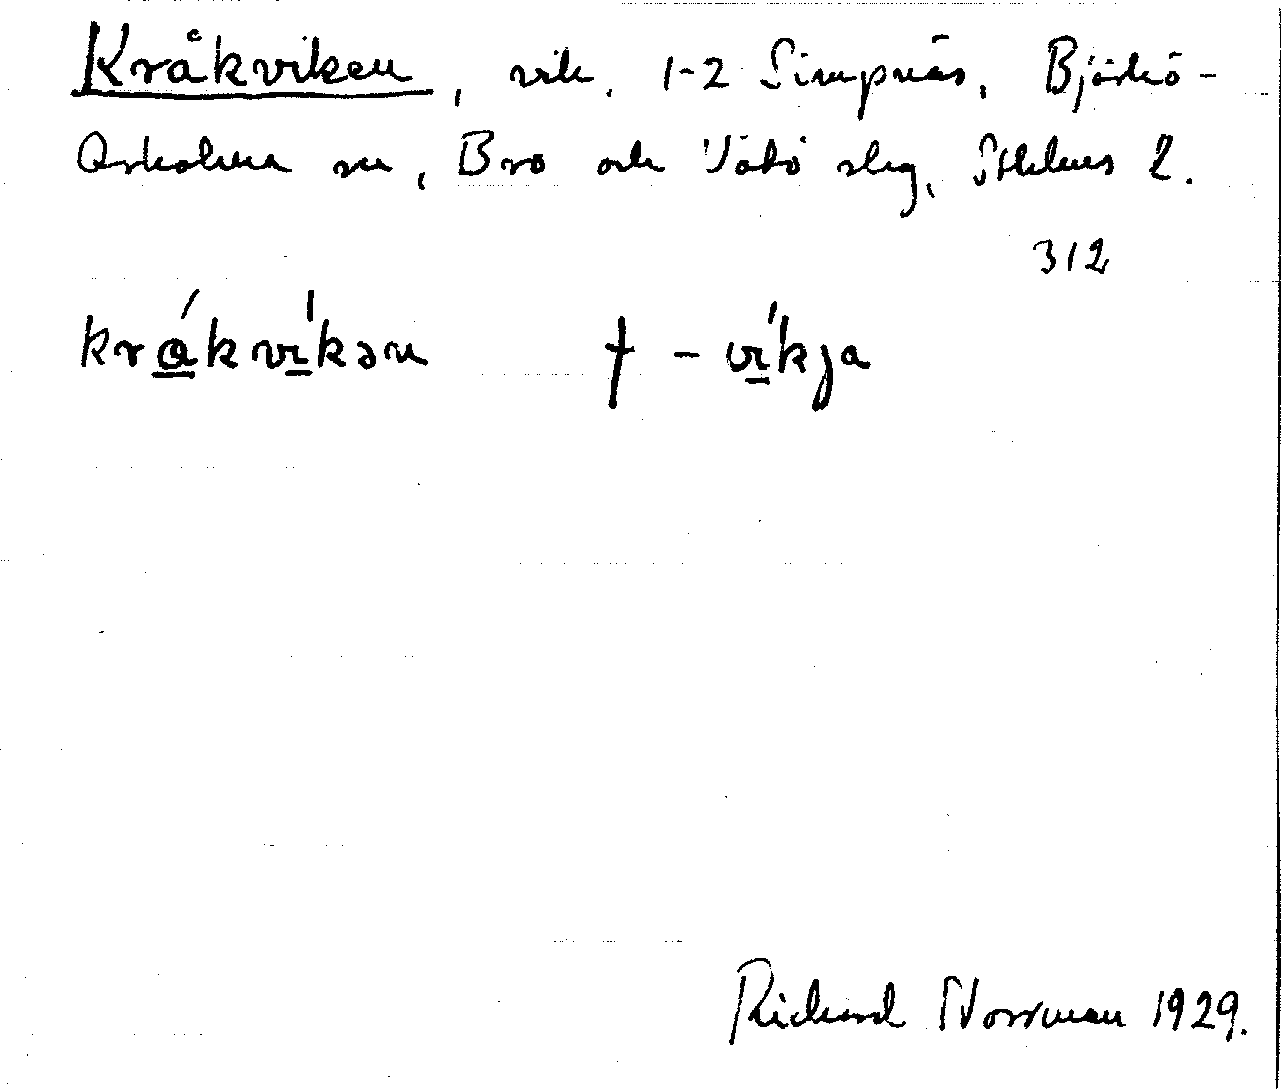 Kråkviken, vik, 1-2 Simpnäs, Björkö-
Arholma sn, Bro och Vätö slag, Sthlms l.
312
krákvíkən † - víkja
Richard Norrman 1929.